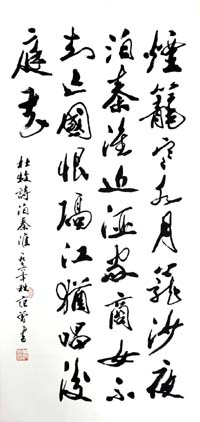 煙籠寒水月籠沙夜
泊秦淮近酒家商女不
知亡國恨隔江猶唱後
庭花
杜牧詩泊秦淮 年秋 范曾書